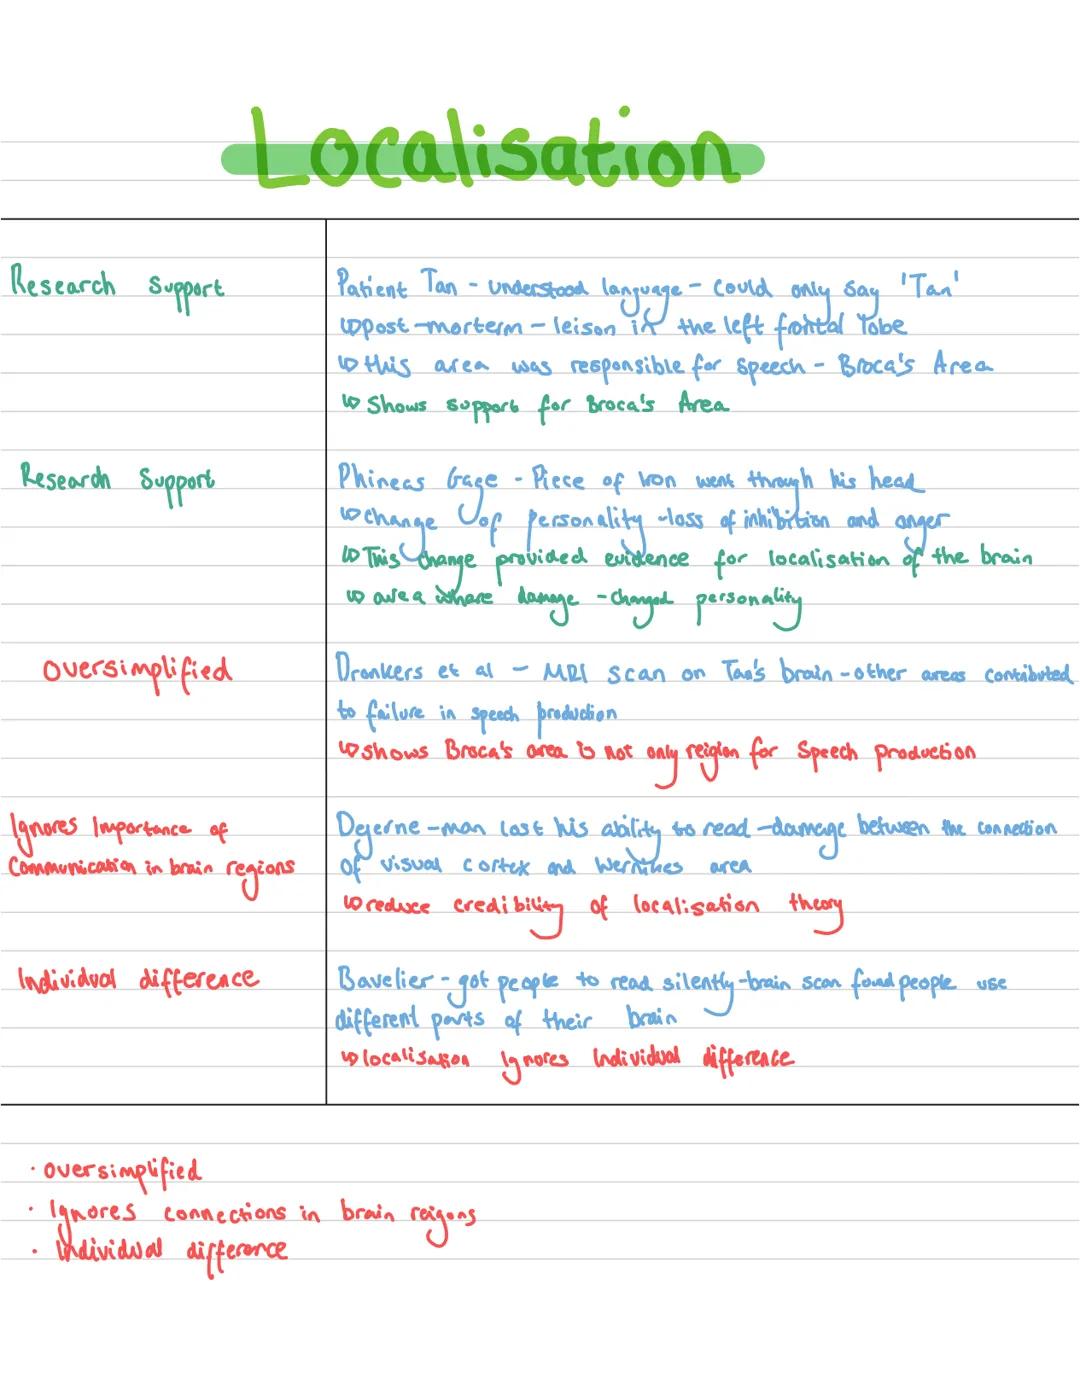 Localisation
Research Support
Patient Tan - understood language - could only say 'Tan'
↳ post-morterm - leison in the left frontal lobe
↳ this area was responsible for speech - Broca's Area
↳ Shows support for Broca's Area
Research Support
Phineas Gage - Piece of Iron went through his head
↳ change of personality - loss of inhibition and anger
↳ This change provided evidence for localisation of the brain
↳ area where damage - changed personality
Oversimplified
Dronkers et al - MRI scan on Tan's brain - other areas contributed
to failure in speech production
↳ shows Broca's area is not only reigion for speech production
Ignores Importance of
Communication in brain regions
Dejerne - man lost his ability to read - damage between the connection
of visual cortex and Wernikes area
↳ reduce credibility of localisation theory
Individual difference
Bavelier - got people to read silently - brain scan found people use
different parts of their brain
↳ localisation Ignores Individual difference
· Oversimplified
· Ignores connections in brain reigons
· Individual difference